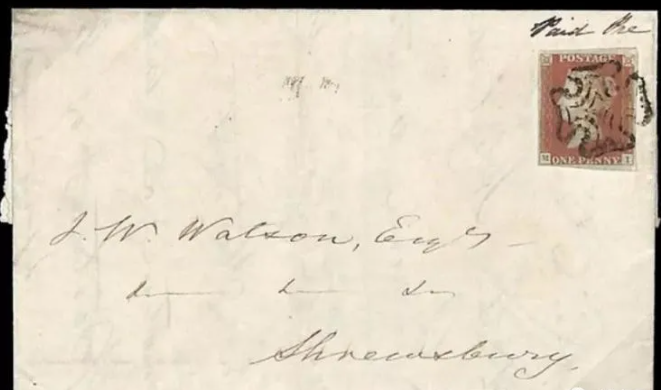 Paid the
POSTAGE
ONE PENNY
J. W. Watson, Esqr
Shrewsbury.